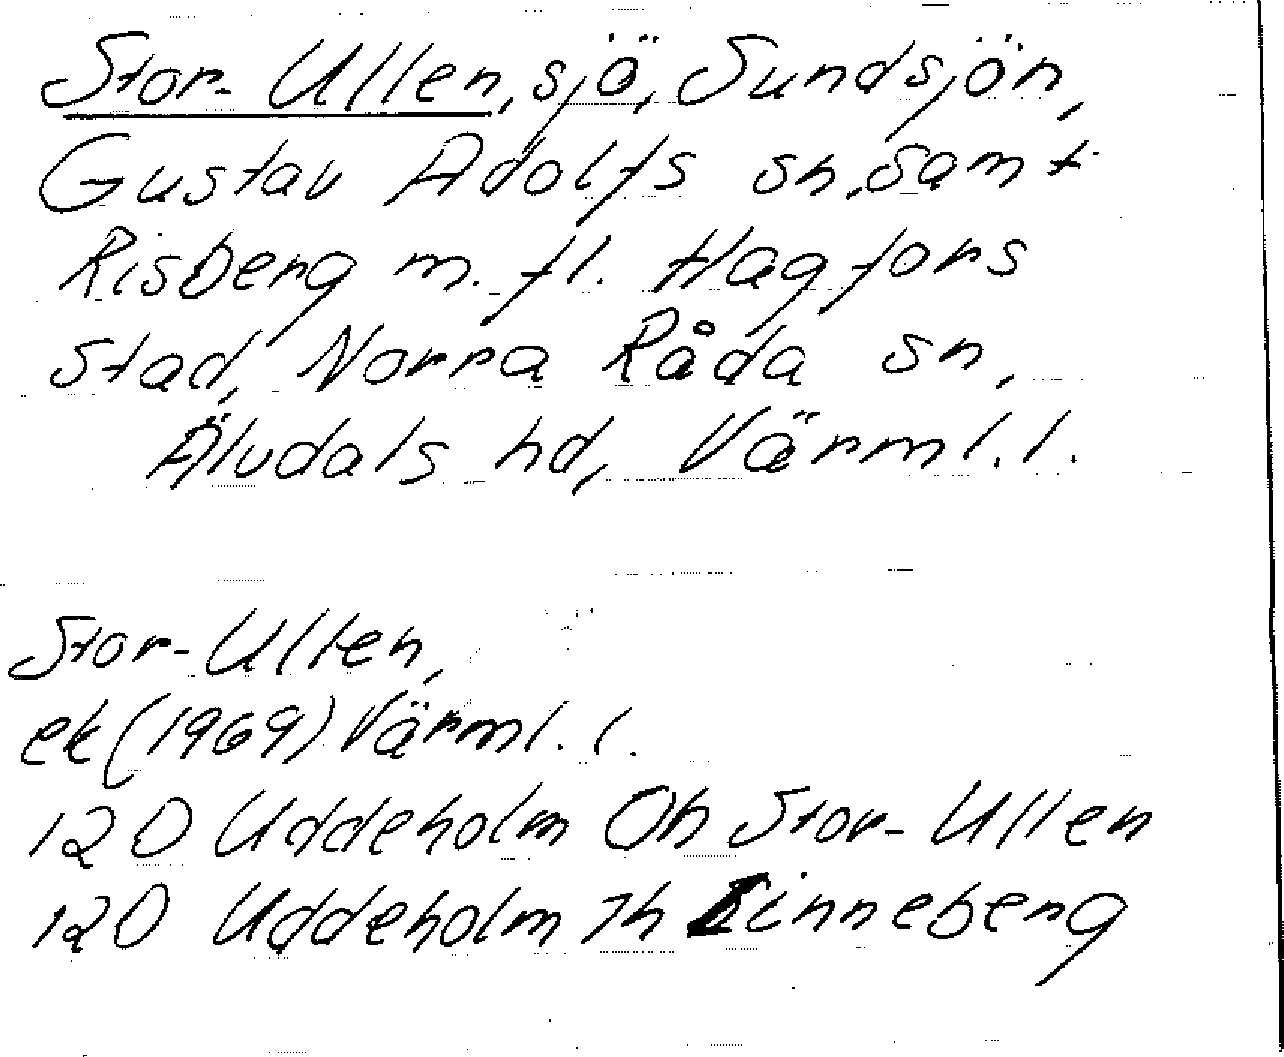 Stor-Ullen, sjö, Sundsjön,
Gustav Adolfs sn, samt
Risberg m. fl. Hagfors
stad, Norra Råda sn,
Älvdals hd, Värml. l.
Stor-Ullen,
ek (1969) Värml. l.
12D Uddeholm 0h Stor-Ullen
12D Uddeholm 7h Linneberg